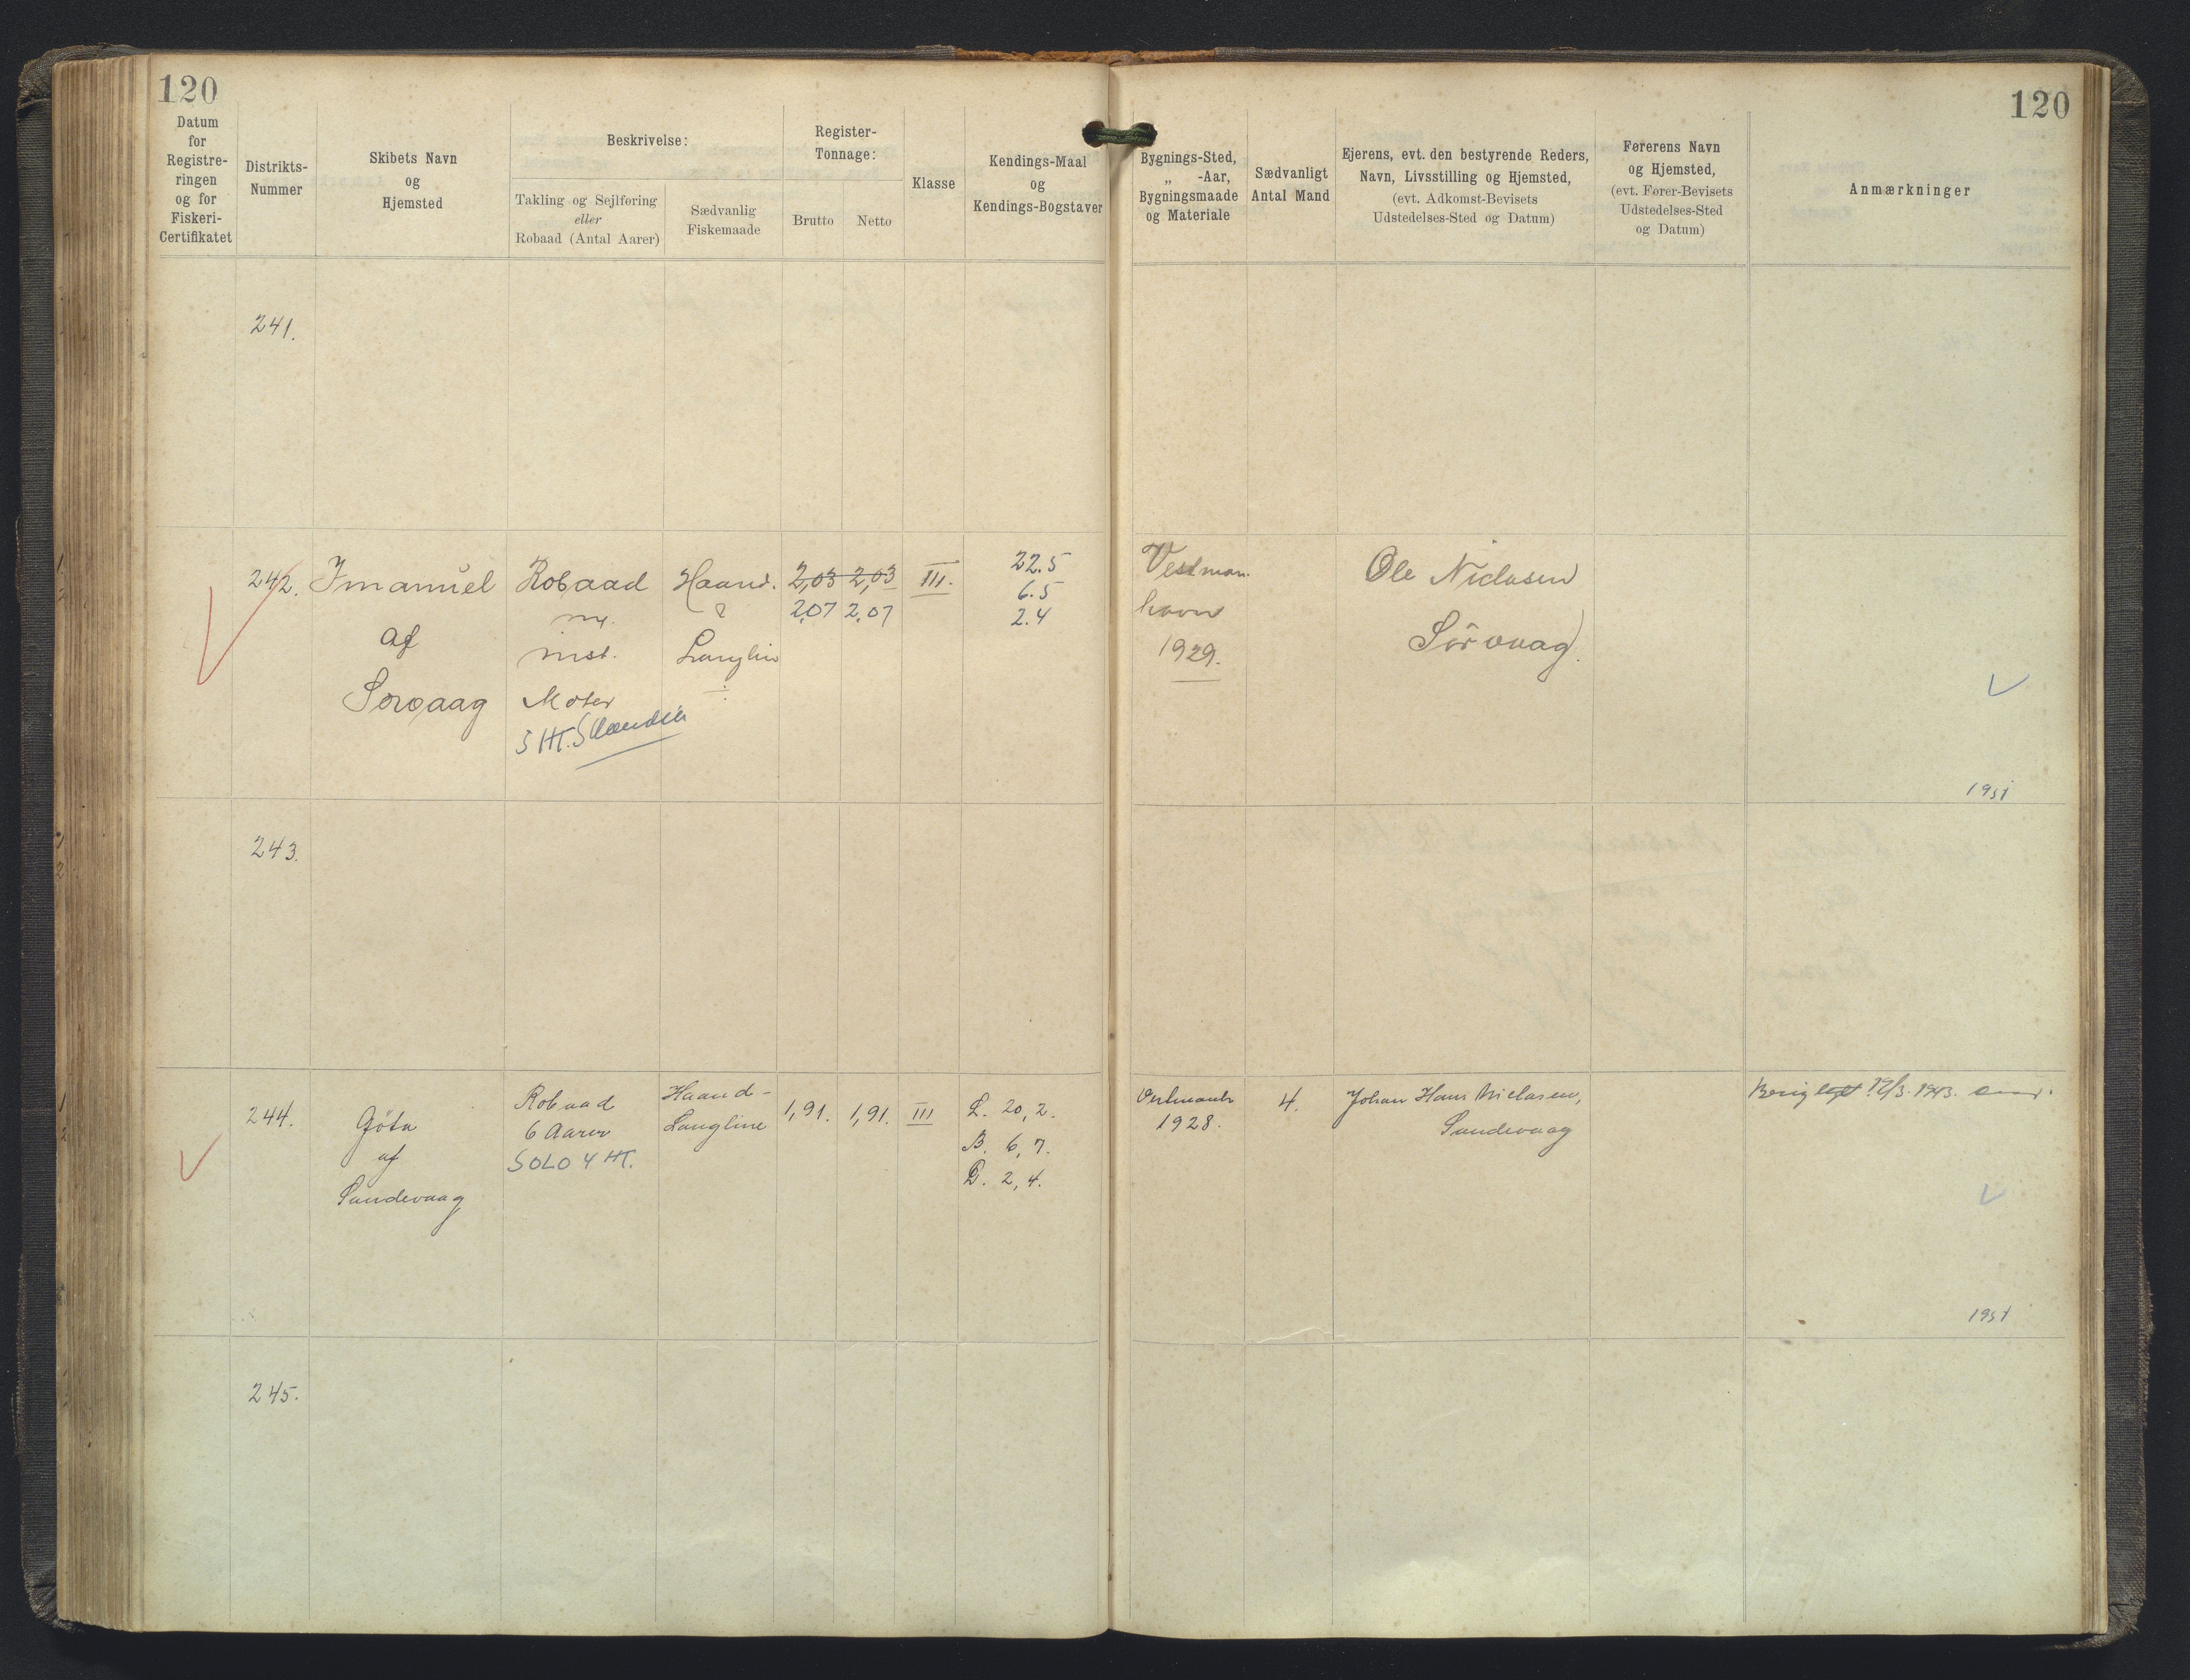 120
120
Datum
for
Registre-
ringen
og for
Fiskeri-
Certifikatet
Distrikts-
Nummer
Skibets Navn
og
Hjemsted
Beskrivelse:
Takling og Sejlføring
eller
Robaad (Antal Aarer)
Sædvanlig
Fiskemaade
Register-
Tonnage:
Brutto
Netto
Klasse
Kendings-Maal
og
Kendings-Bogstaver
Bygnings-Sted,
„ -Aar,
Bygningsmaade
og Materiale
Sædvanligt
Antal Mand
Ejerens, evt. den bestyrende Reders,
Navn, Livsstilling og Hjemsted,
(evt. Adkomst-Bevisets
Udstedelses-Sted og Datum)
Førerens Navn
og Hjemsted,
(evt. Fører-Bevisets
Udstedelses-Sted
og Datum)
Anmærkninger
241.
242.
Imanuel
af
Sorvaag
Robaad
m.
inst.
Motor
5 HK.
Haand.
&
Langlin
2,03 2,03
2,07 2,07
III.
22.5
6.5
2.4
Vestman.
havn
1929.
Ole Niclasen
Sörvaag.
1951
243.
244.
Göta
af
Sandevaag
Robaad
6 Aarer
SOLO 4 HK.
Haand-
Langline
1,91.
1,91.
III
L. 20,2.
B. 6,7.
D. 2,4.
1928.
4.
Johan Hans Niclasen,
Sandevaag
1943.
1951
245.